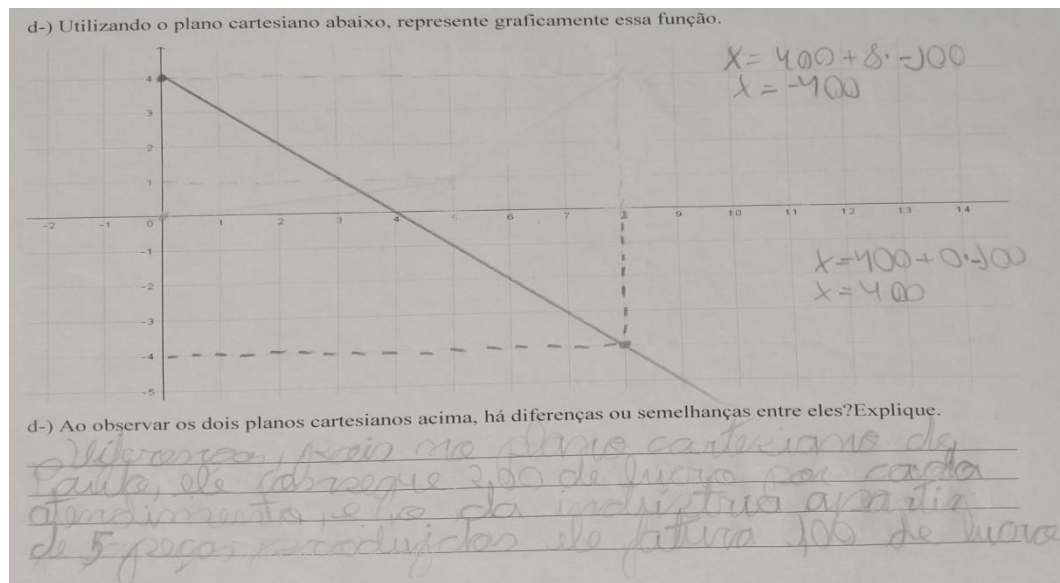 d-) Utilizando o plano cartesiano abaixo, represente graficamente essa função.
X= 400+8·-100
X = -400
4
3
2
1
-2 -1 0 1 2 3 4 5 6 7 8 9 10 11 12 13 14
-1
X=400+0·-100
X=400
-2
-3
-4
-5
d-) Ao observar os dois planos cartesianos acima, há diferenças ou semelhanças entre eles?Explique.
pois no plano carteziano de
Paulo, ele de lucro por cada
atendimento, e o da indústria apartir
de 5 peças produzidas ele fatura 100 de lucro